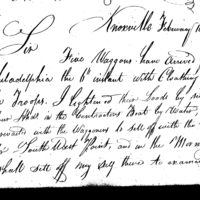 Knoxville February
Sir
Five Waggons have arrived
iladelphia the 6th instant with Cloathing
Troops. I lightened their loads by
in the Quartermasters Boat by Water
with the Waggoners to sell off with the
South West Point, and in the Morn
shall sett off my self there to examine